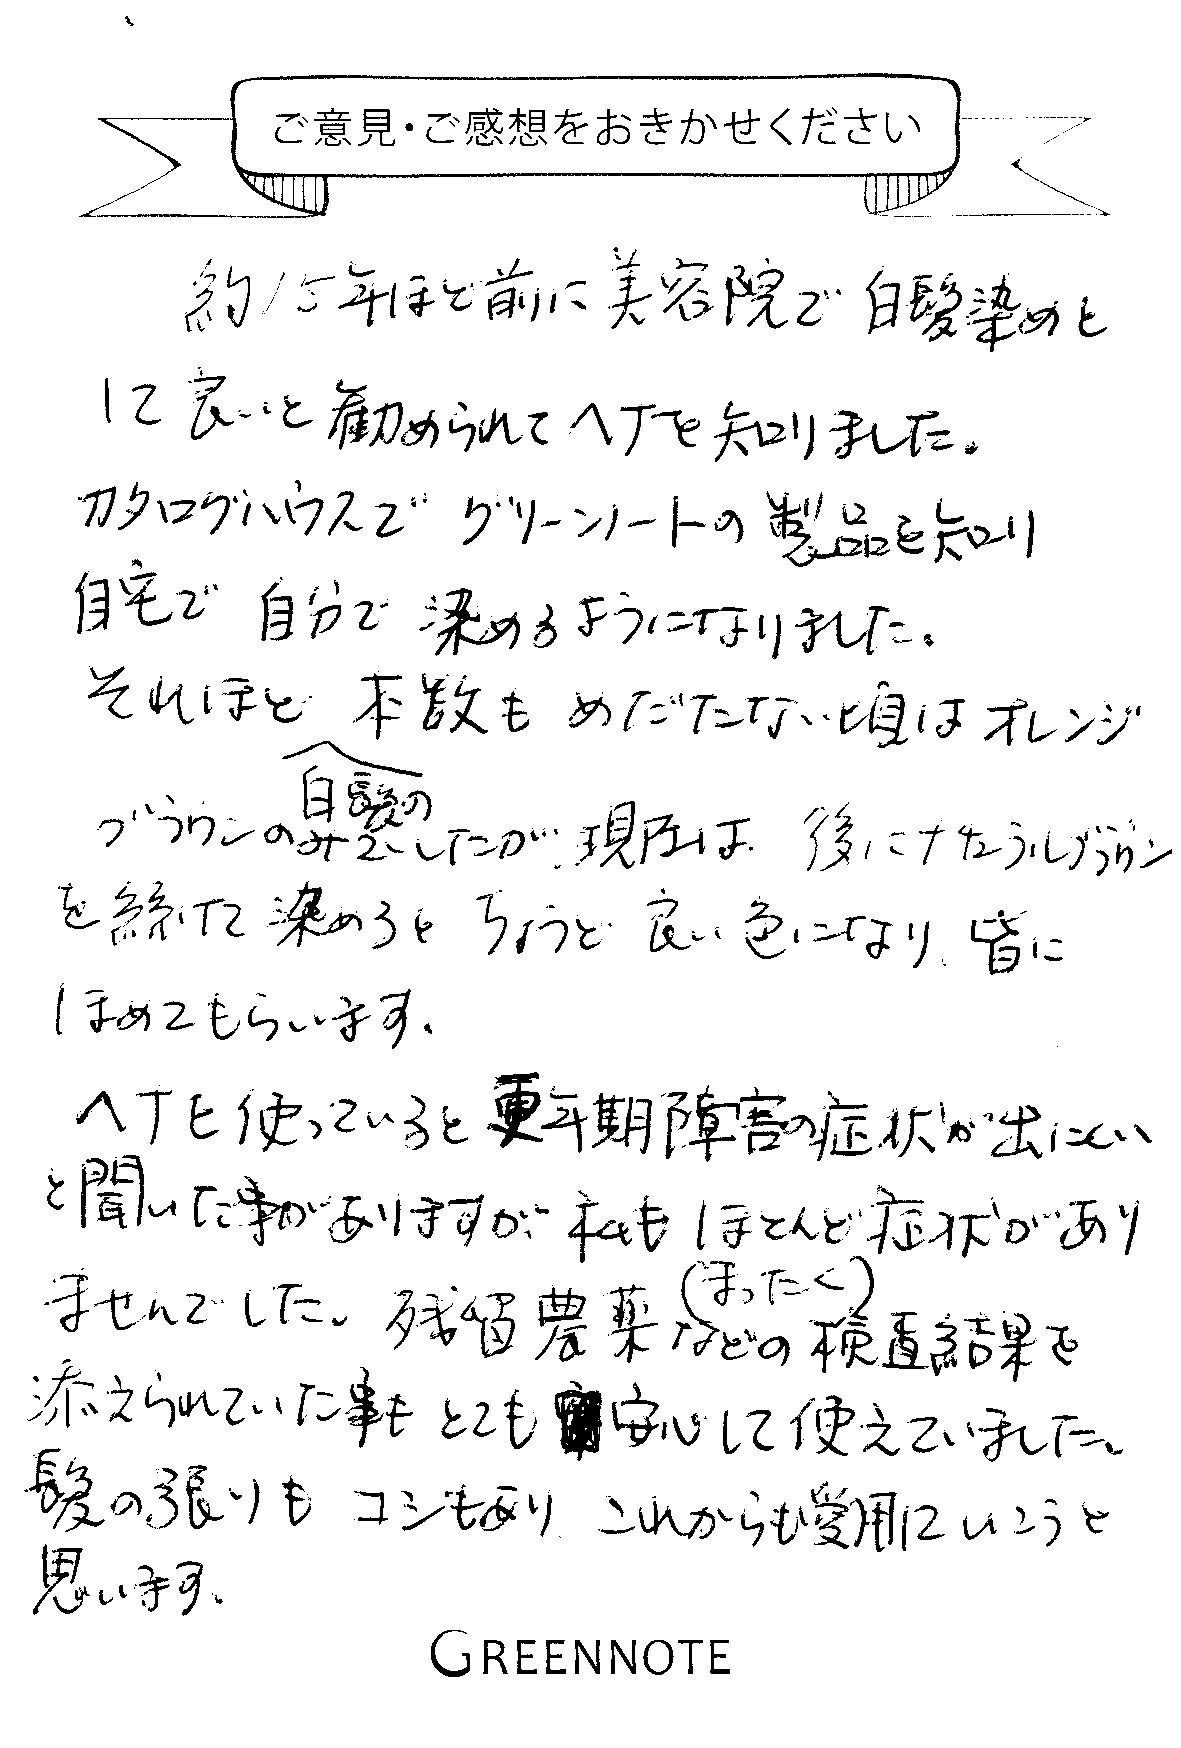 ご意見・ご感想をおきかせください
約15年ほど前に美容院で白髪染めと
して良いと勧められてヘナを知りました。
カタログハウスでグリーンノートの製品を知り
自宅で自分で染めるようになりました。
それほど本数もめだたない頃はオレンジ
白髪の
ブラウンのみでしたが、現在は、後にナチュラルブラウン
を続けて染めるとちょうど良い色になり、皆に
ほめてもらいます。
ヘナを使っていると更年期障害の症状が出にくい
と聞いた事がありますが、私もほとんど症状があり
(まったく)
ませんでした。残留農薬などの検査結果を
添えられていた事もとても安心して使えていました。
髪の張りもコシもあり、これからも愛用していこうと
思います。
GREENNOTE